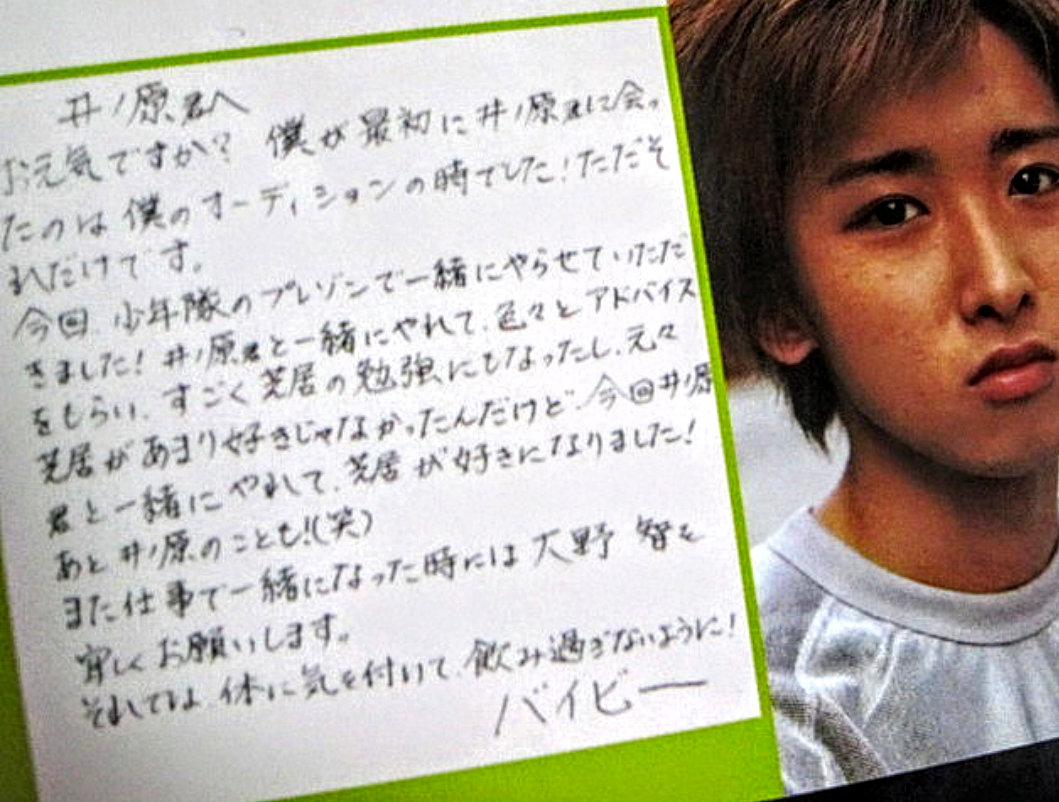 井ノ原君へ
お元気ですか? 僕が最初に井ノ原君に会っ
たのは僕のオーディションの時でした!ただそ
れだけです。
今回、少年隊のプレゾンで一緒にやらせていただ
きました!井ノ原君と一緒にやれて、色々とアドバイス
をもらい、すごく芝居の勉強にもなったし、元々
芝居があまり好きじゃなかったんだけど、今回井ノ原
君と一緒にやれて、芝居が好きになりました!
あと井ノ原のことも!(笑)
また仕事で一緒になった時には大野 智を
宜しくお願いします。
それでは、体に気を付けて、飲み過ぎないように!
バイビー